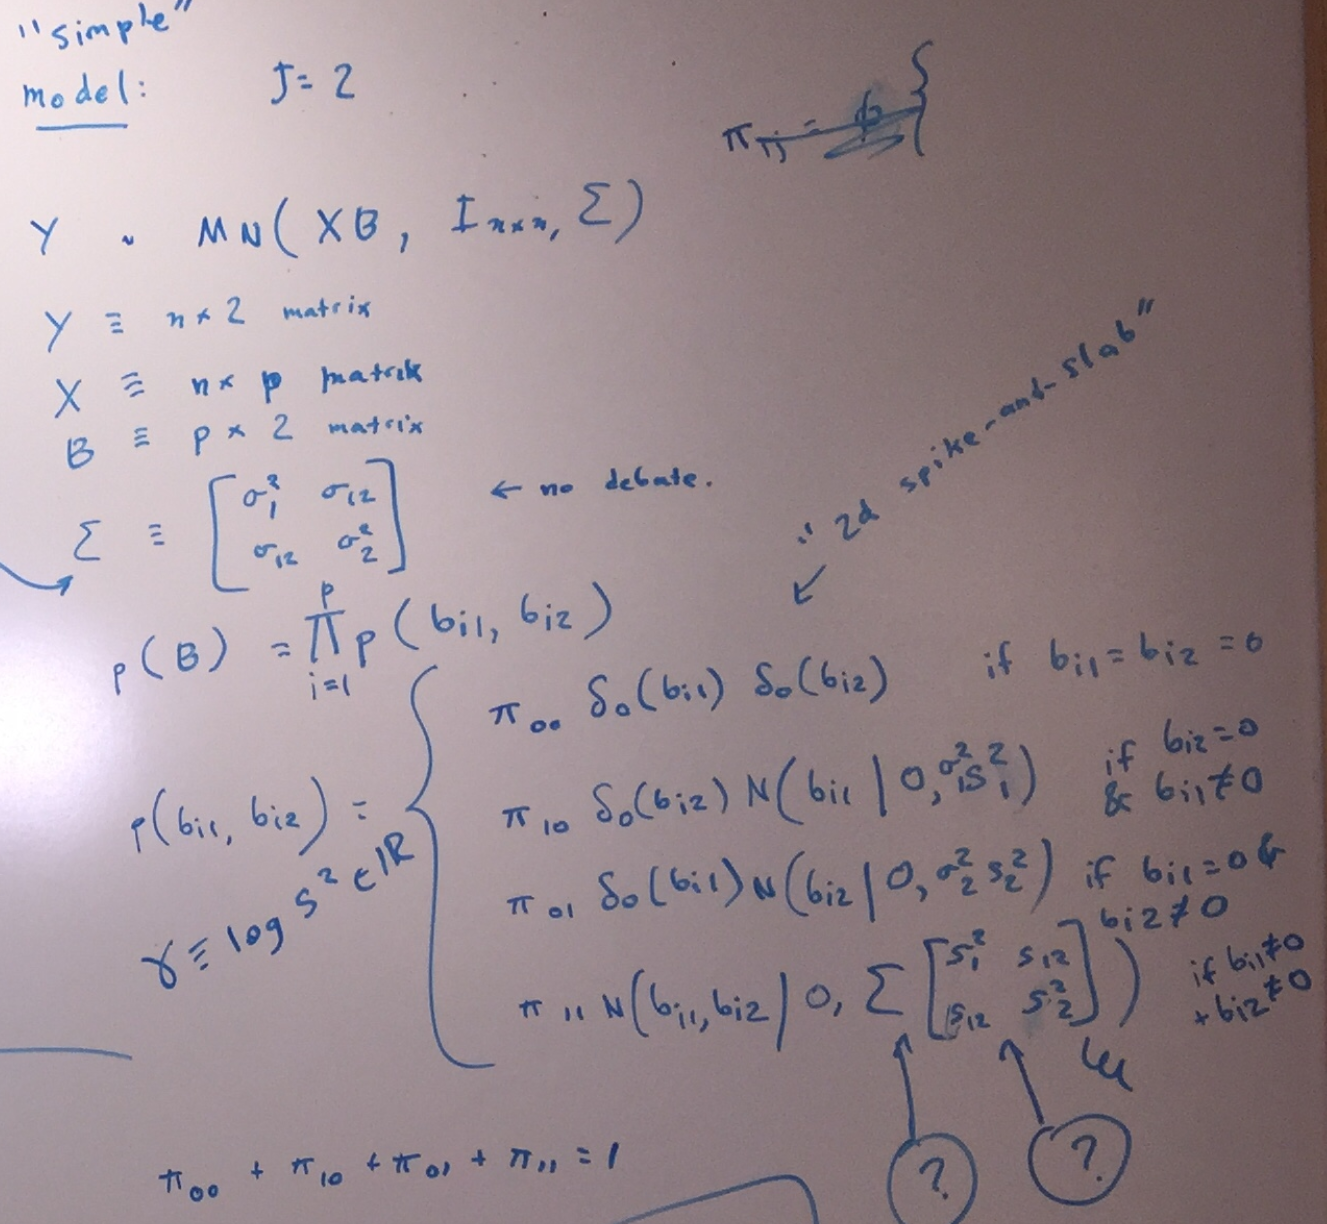 "simple"
model: J = 2
π_jj = {
Y ~ MN( XB, I_n×n, Σ)
Y ≡ n × 2 matrix
X ≡ n × p matrix
B ≡ p × 2 matrix
Σ ≡ [ σ₁² σ₁₂ ; σ₁₂ σ₂² ] ← no debate.
"2d spike-and-slab"
p(B) = ∏_{i=1}^{p} p(b_i1, b_i2)
p(b_i1, b_i2) = {
π₀₀ δ₀(b_i1) δ₀(b_i2) if b_i1 = b_i2 = 0
π₁₀ δ₀(b_i2) N(b_i1 | 0, σ₁² s₁²) if b_i2 = 0 & b_i1 ≠ 0
π₀₁ δ₀(b_i1) N(b_i2 | 0, σ₂² s₂²) if b_i1 = 0 & b_i2 ≠ 0
π₁₁ N(b_i1, b_i2 | 0, Σ [ s₁² s₁₂ ; s₁₂ s₂² ]) if b_i1 ≠ 0 + b_i2 ≠ 0
γ ≡ log s² ∈ ℝ
? ?
π₀₀ + π₁₀ + π₀₁ + π₁₁ = 1